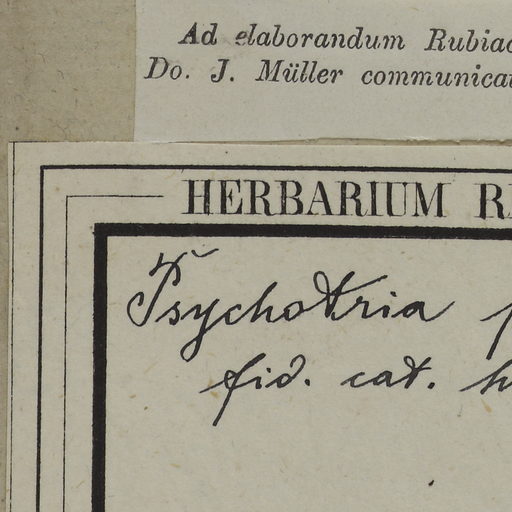 Ad elaborandum Rubiac
Do. J. Müller communicat
HERBARIUM R
Psychotria
fid. cat.